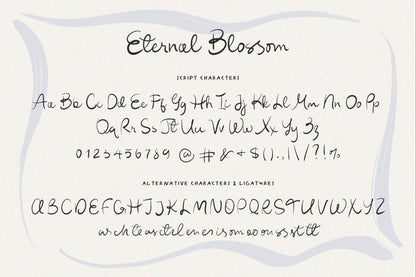 Eternal Blossom
SCRIPT CHARACTERS
Aa Bb Cc Dd Ee Ff Gg Hh Ii Jj Kk Ll Mm Nn Oo Pp
Qq Rr Ss Tt Uu Vv Ww Xx Yy Zz
0123456789 @ # & + $ () . , | \ / ? ! %
ALTERNATIVE CHARACTERS & LIGATURES
ABCDEFGHIJKLMNOPQRSTUVWXYZ
ar ch te as it el en er is om oo on os st tt